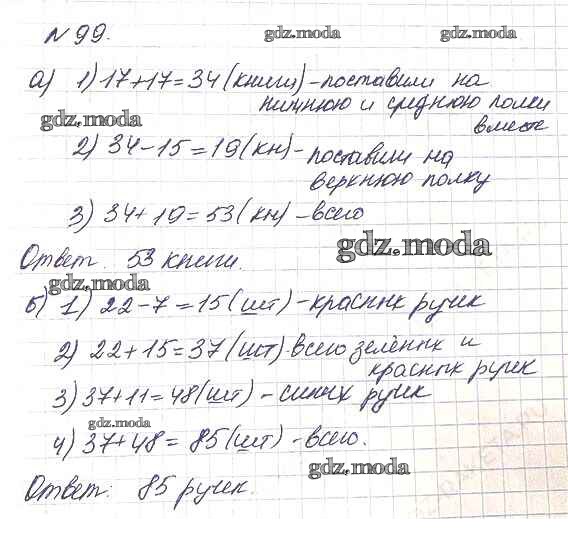 № 99.
gdz.moda gdz.moda
а) 1) 17+17=34 (книги) - поставили на
нижнюю и среднюю полки
gdz.moda
вместе
2) 34-15=19 (кн) - поставили на
верхнюю полку
3) 34+19=53 (кн) - всего
gdz.moda
Ответ: 53 книги.
gdz.moda
б) 1) 22-7=15 (шт) - красных ручек
2) 22+15=37 (шт) - всего зелёных и
красных ручек
3) 37+11=48 (шт) - синих ручек
gdz.moda
4) 37+48=85 (шт) - всего.
gdz.moda
Ответ: 85 ручек.